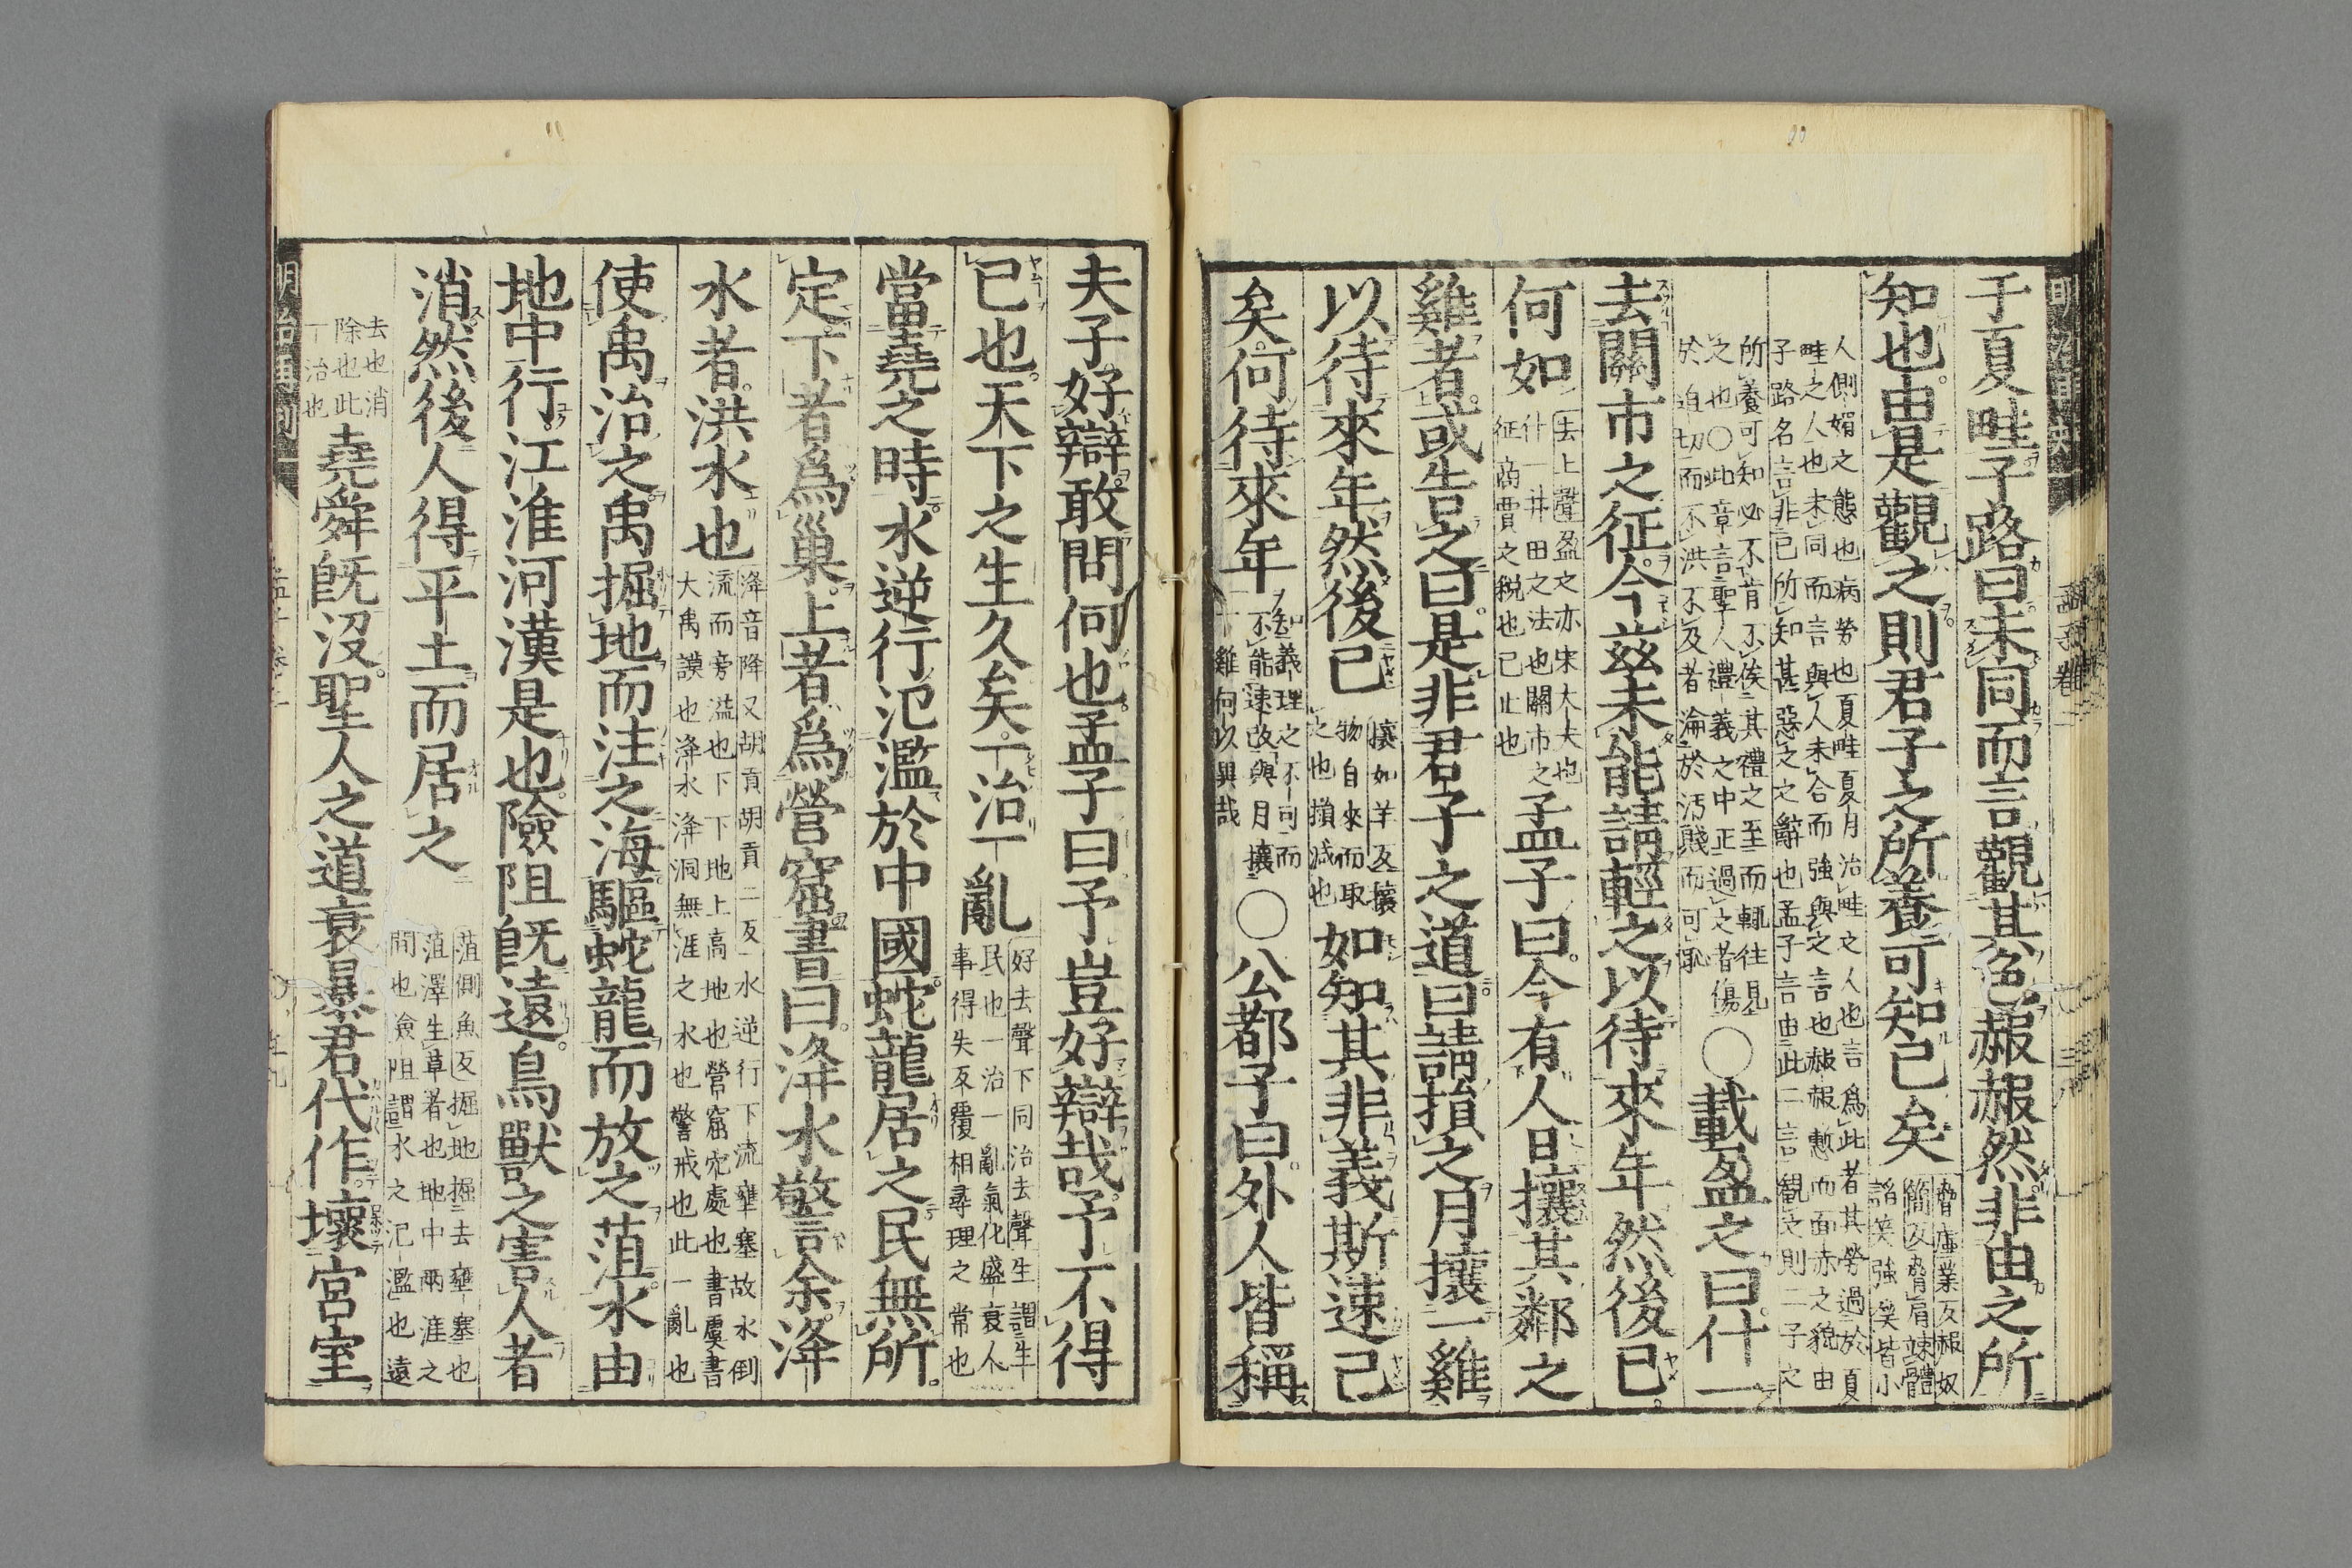 于夏畦子路曰未同而言觀其色赧赧然非由之所
知也由是觀之則君子之所養可知已矣
脅虚業反赧奴
簡反脅肩竦體
諂笑強笑皆小
人側媚之態也病勞也夏畦夏月治畦之人也言爲此者其勞過於夏
畦之人也未同而言與人未合而強與之言也赧赧慙而面赤之貌由
子路名言非己所知甚惡之之辭也孟子言由此二言觀之則二子之
所養可知必不肯不俟其禮之至而輒往見
之也○此章言聖人禮義之中正過之者傷
於迫切而不洪不及者淪於汚賤而可恥
○載盈之曰什一
去關市之征今茲未能請輕之以待來年然後已
何如
去上聲盈之亦宋大夫也
什一井田之法也關市之
征商賈之稅也已止也
孟子曰今有人日攘其鄰之
雞者或告之曰是非君子之道曰請損之月攘一雞
以待來年然後已
攘如羊反攘
物自來而取
之也損減也
如知其非義斯速已
矣何待來年
知義理之不可而
不能速改與月攘
一雞何以異哉
○公都子曰外人皆稱
夫子好辯敢問何也孟子曰予豈好辯哉予不得
已也天下之生久矣一治一亂
好去聲下同治去聲生謂生
民也一治一亂氣化盛衰人
事得失反覆相尋理之常也
當堯之時水逆行氾濫於中國蛇龍居之民無所
定下者爲巢上者爲營窟書曰洚水警余洚
水者洪水也
洚音降又胡貢胡貢二反水逆行下流壅塞故水倒
流而旁溢也下下地上高地也營窟穴處也書虞書
大禹謨也洚水洚洞無涯之水也警戒也此一亂也
使禹治之禹掘地而注之海驅蛇龍而放之菹水由
地中行江淮河漢是也險阻旣遠鳥獸之害人者
消然後人得平土而居之
菹側魚反掘地掘去壅塞也
菹澤生草者也地中兩涯之
間也險阻謂水之氾濫也遠
去也消
除也此
一治也
堯舜旣沒聖人之道衰暴君代作壞宮室